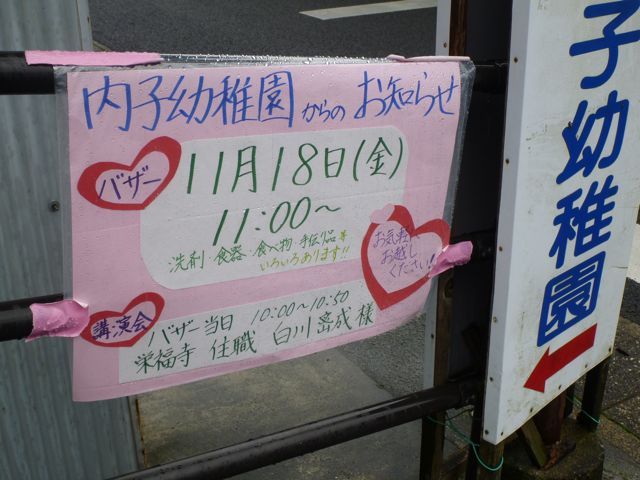 内子幼稚園からのお知らせ
バザー
11月18日(金)
11:00〜
洗剤・食器・食べ物・手伝い品等
いろいろあります!!
お気軽に
お越し
ください!
講演会
バザー当日 10:00〜10:50
栄福寺 住職 白川密成様
子幼稚園